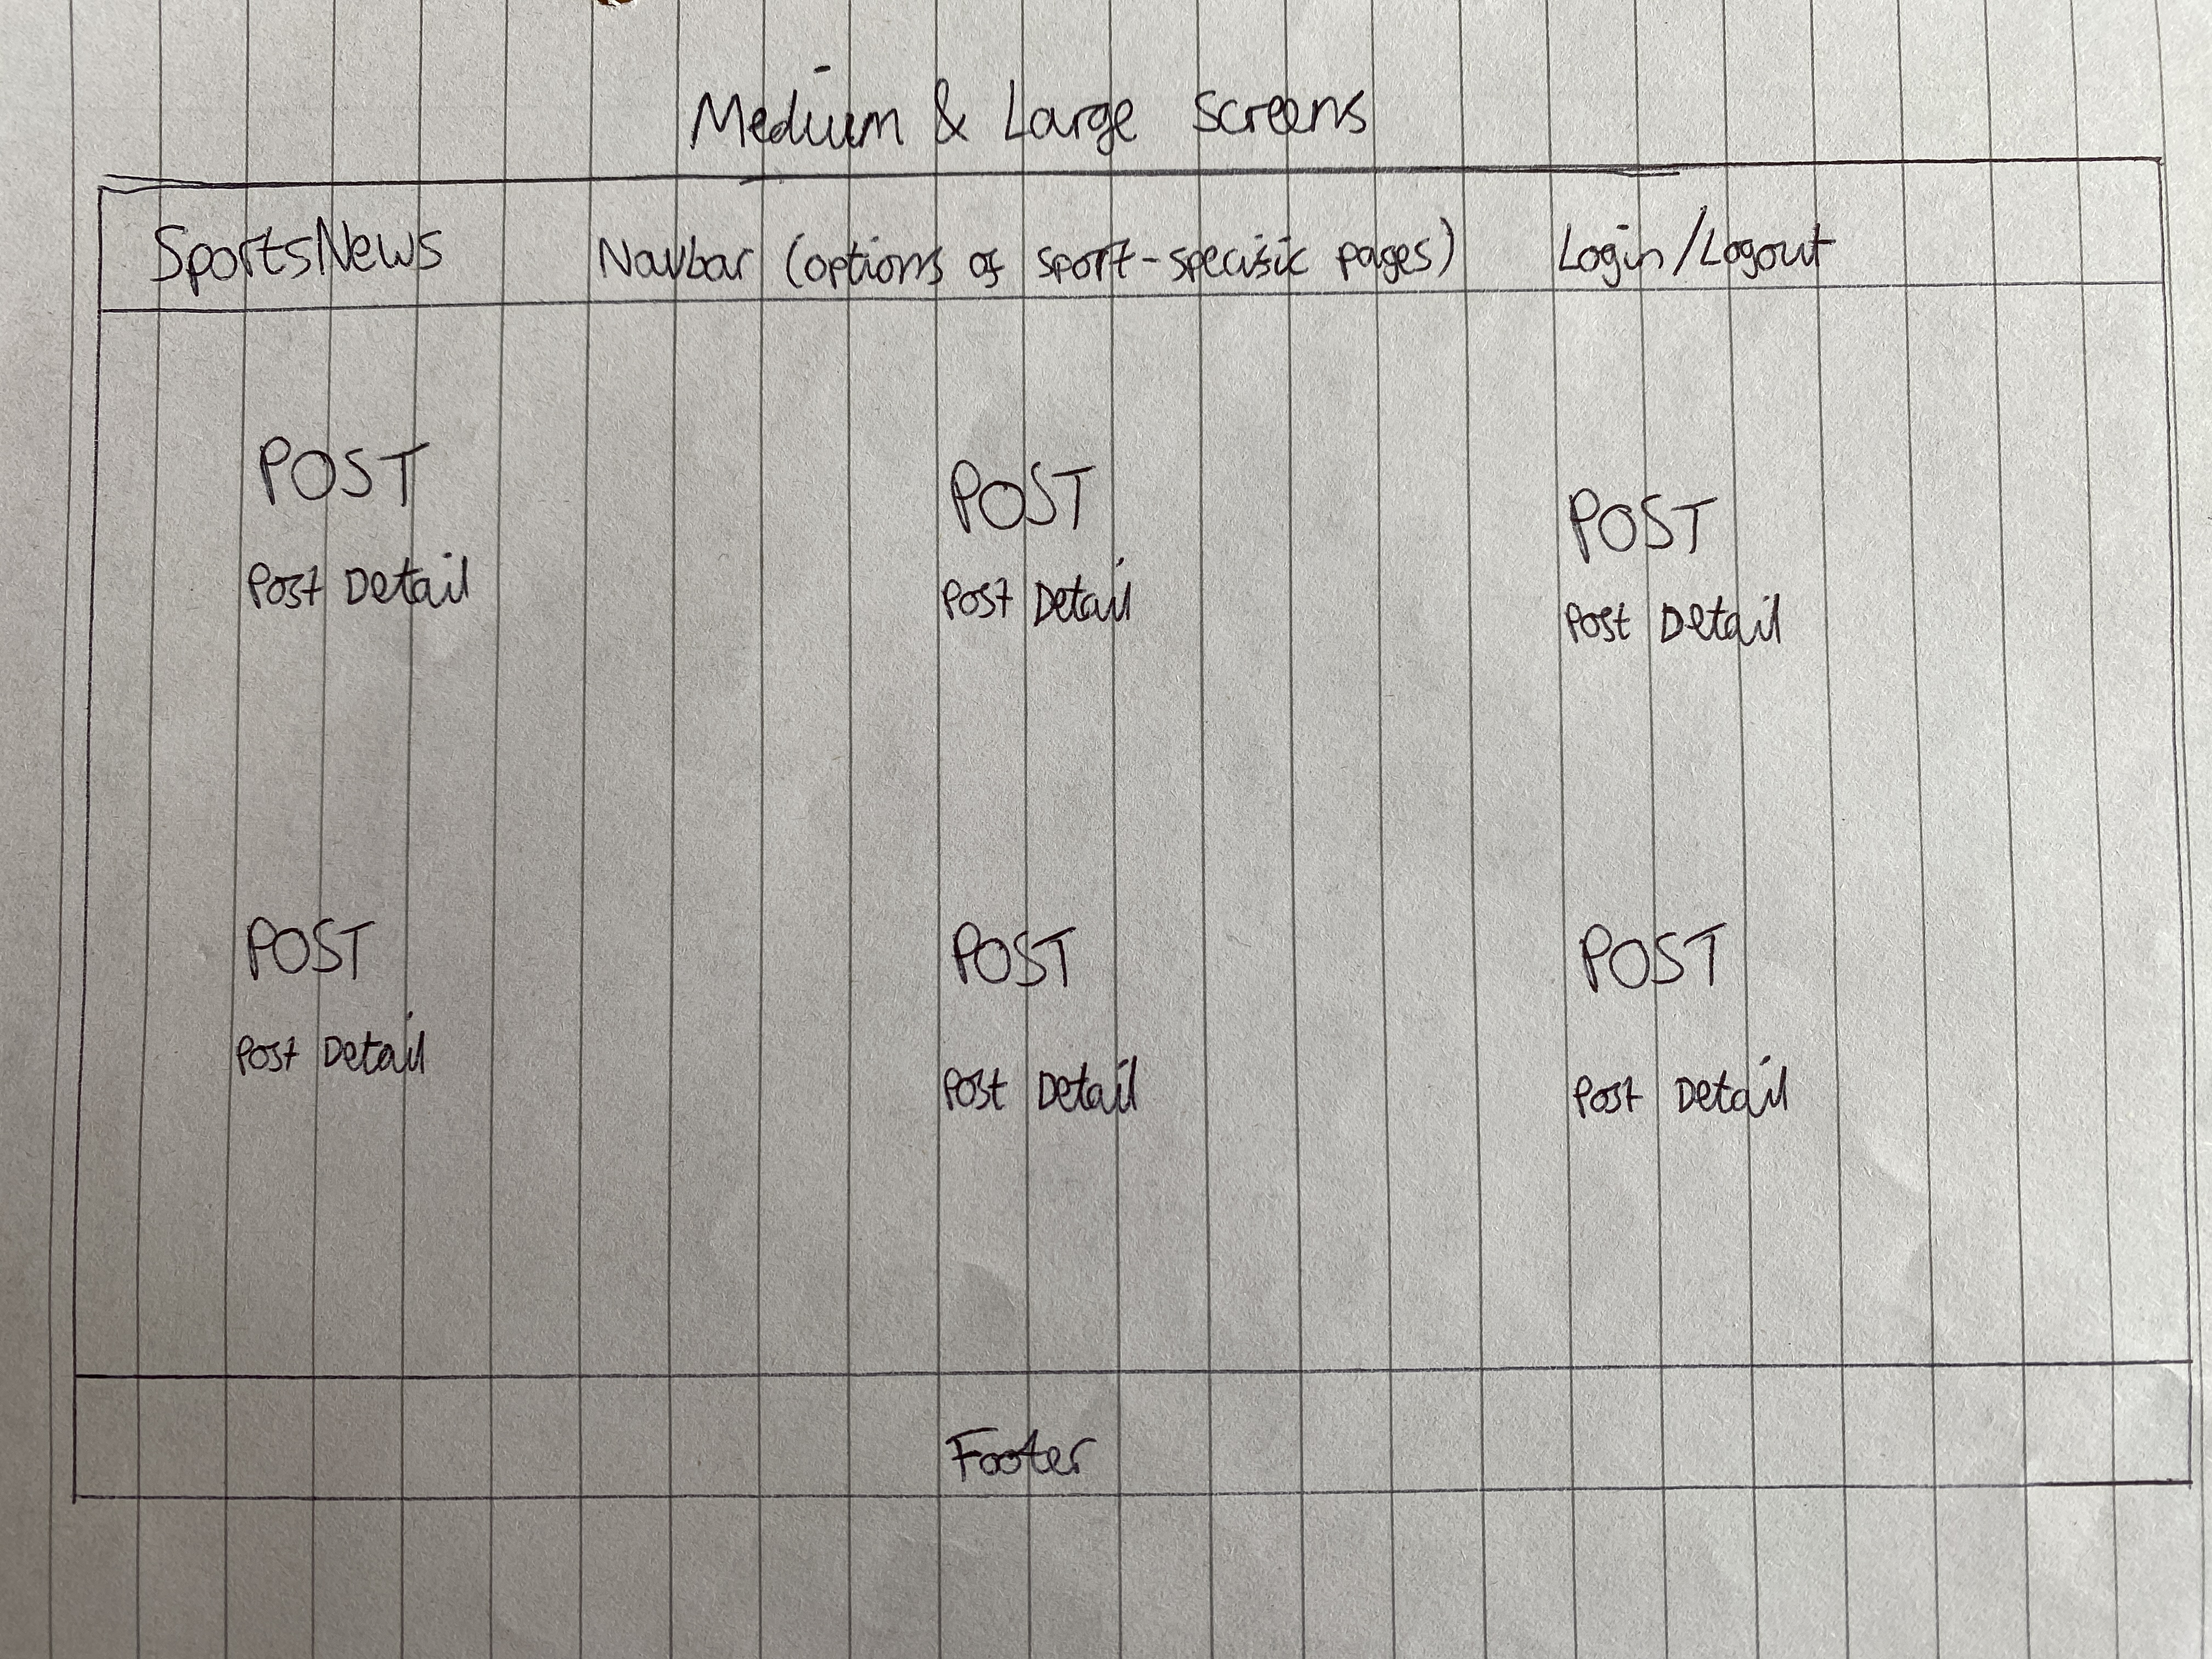 Medium & Large Screens
SportsNews Navbar (options of sport-specific pages) Login/Logout
POST POST POST
Post Detail Post Detail Post Detail
POST POST POST
Post Detail Post Detail Post Detail
Footer